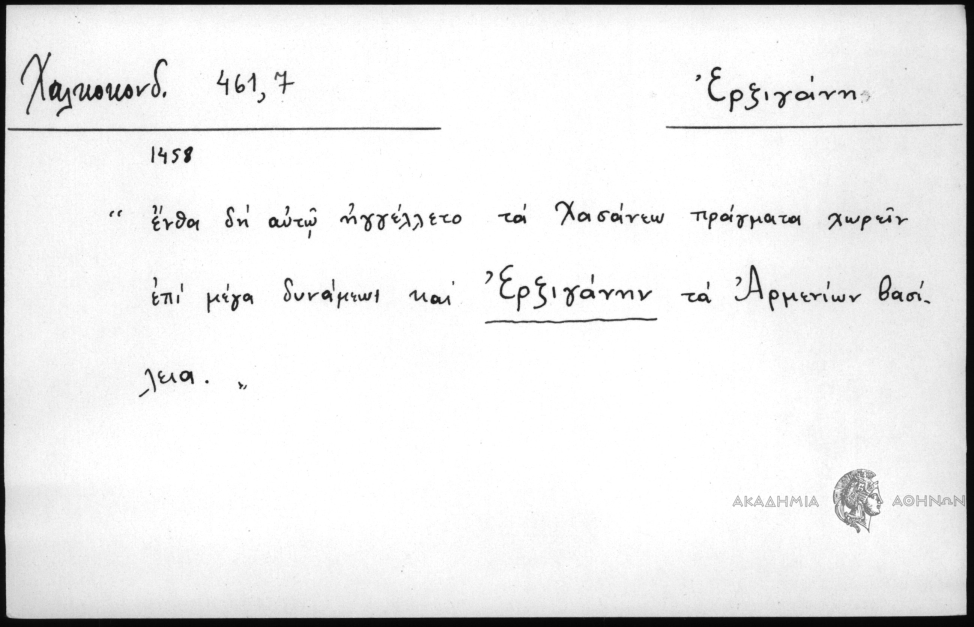 Χαλκοκονδ. 461,7
Ἐρξιγάνη
1458
“ ἔνθα δή αὐτῷ ἠγγέλλετο τά Χασάνεω πράγματα χωρεῖν
ἐπί μέγα δυνάμεως καί Ἐρξιγάνην τά Ἀρμενίων βασί-
λεια. „
ΑΚΑΔΗΜΙΑ ΑΘΗΝΩΝ